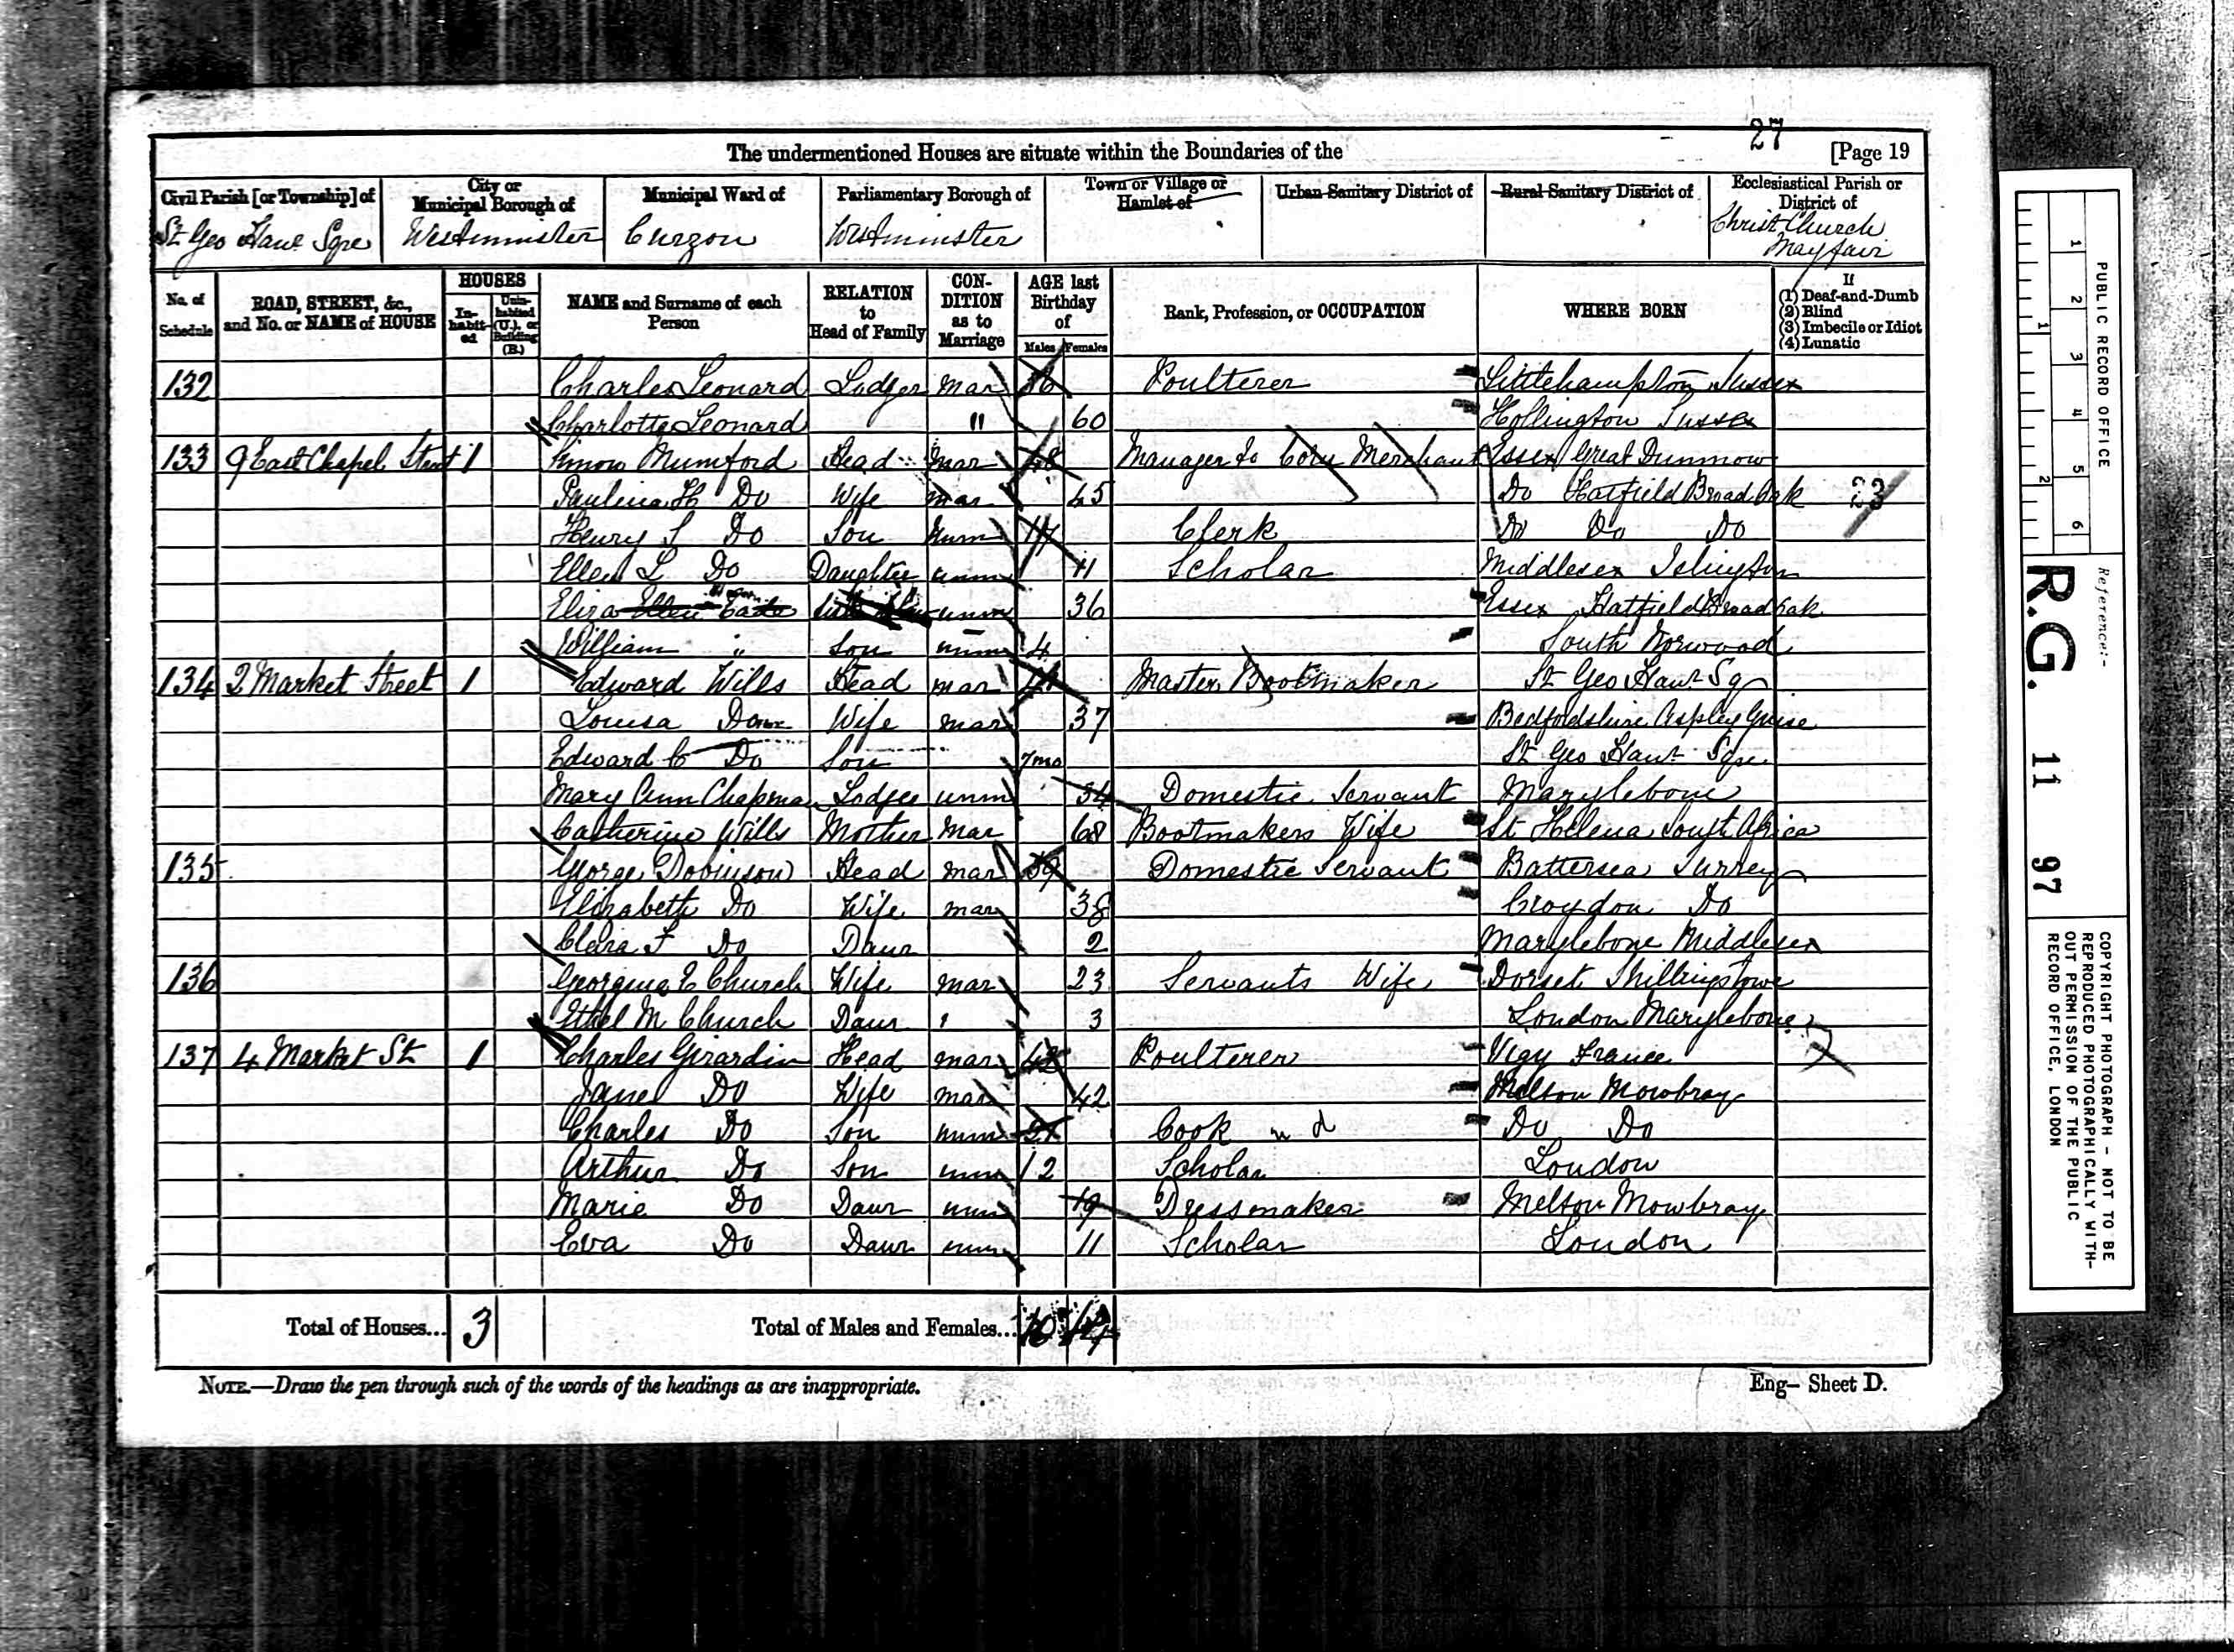 27
The undermentioned Houses are situate within the Boundaries of the [Page 19
Civil Parish [or Township] of City or Municipal Borough of Municipal Ward of Parliamentary Borough of Town or Village or Hamlet of Urban Sanitary District of Rural Sanitary District of Ecclesiastical Parish or District of
St Geo Han Sqre Westminster Curzon Westminster Christ Church Mayfair
No. of Schedule ROAD, STREET, &c., and No. or NAME of HOUSE HOUSES In-habit-ed Unin-habited (U.), or Building (B.) NAME and Surname of each Person RELATION to Head of Family CON-DITION as to Marriage AGE last Birthday of Males Females Rank, Profession, or OCCUPATION WHERE BORN If (1) Deaf-and-Dumb (2) Blind (3) Imbecile or Idiot (4) Lunatic
132 Charles Leonard Lodger mar Poulterer Littlehampton Sussex
Charlotte Leonard " 60 Hollington Sussex
133 9 East Chapel Street 1 Simon Mumford Head mar 48 Manager to Corn Merchant Essex Great Dunmow
Paulina H Do Wife mar 45 Do Hatfield Broad Oak 23
Henry S Do Son unm 17 Clerk Do Do Do
Ellen L Do Daughter unm 11 Scholar Middlesex Islington
Eliza unm 36 Essex Hatfield Broad Oak
William " Son unm 4 South Norwood
134 2 Market Street 1 Edward Wills Head mar Master Bootmaker St Geo Han Sq
Louisa Do Wife mar 37 Bedfordshire Aspley Guise
Edward C Do Son 7mo St Geo Han Sqre
Mary Ann Chapman Lodger unm 34 Domestic Servant Marylebone
Catherine Wills Mother mar 68 Bootmakers Wife St Helena South Africa
135 George Dobinson Head mar 39 Domestic Servant Battersea Surrey
Elizabeth Do Wife mar 38 Croydon Do
Clara F Do Daur 2 Marylebone Middlesex
136 Georgina E Church Wife mar 23 Servants Wife Dorset Shillingstone
Ethel M Church Daur 3 London Marylebone
137 4 Market St 1 Charles Girardin Head mar 43 Poulterer Vigy France
Jane Do Wife mar 42 Melton Mowbray
Charles Do Son unm 21 Cook Do Do
Arthur Do Son unm 12 Scholar London
Marie Do Daur unm 19 Dressmaker Melton Mowbray
Eva Do Daur unm 11 Scholar London
Total of Houses... 3 Total of Males and Females... 10 14
NOTE.—Draw the pen through such of the words of the headings as are inappropriate. Eng- Sheet D.
PUBLIC RECORD OFFICE
1 2 3 4 5 6
1 2
Reference:-
R.G. 11 97
COPYRIGHT PHOTOGRAPH - NOT TO BE
REPRODUCED PHOTOGRAPHICALLY WITH-
OUT PERMISSION OF THE PUBLIC
RECORD OFFICE, LONDON